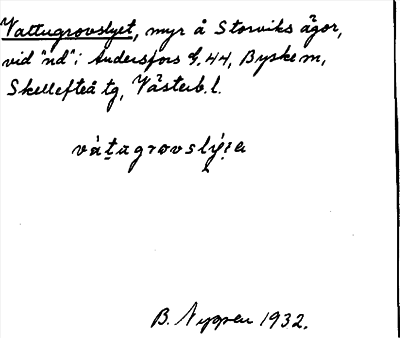 Vattugrovslyet, myr å Storviks ägor,
vid "nd" i Andersfors G. 44, Byske m,
Skellefteå tg, Västerb. l.
B. Nyppen 1932.